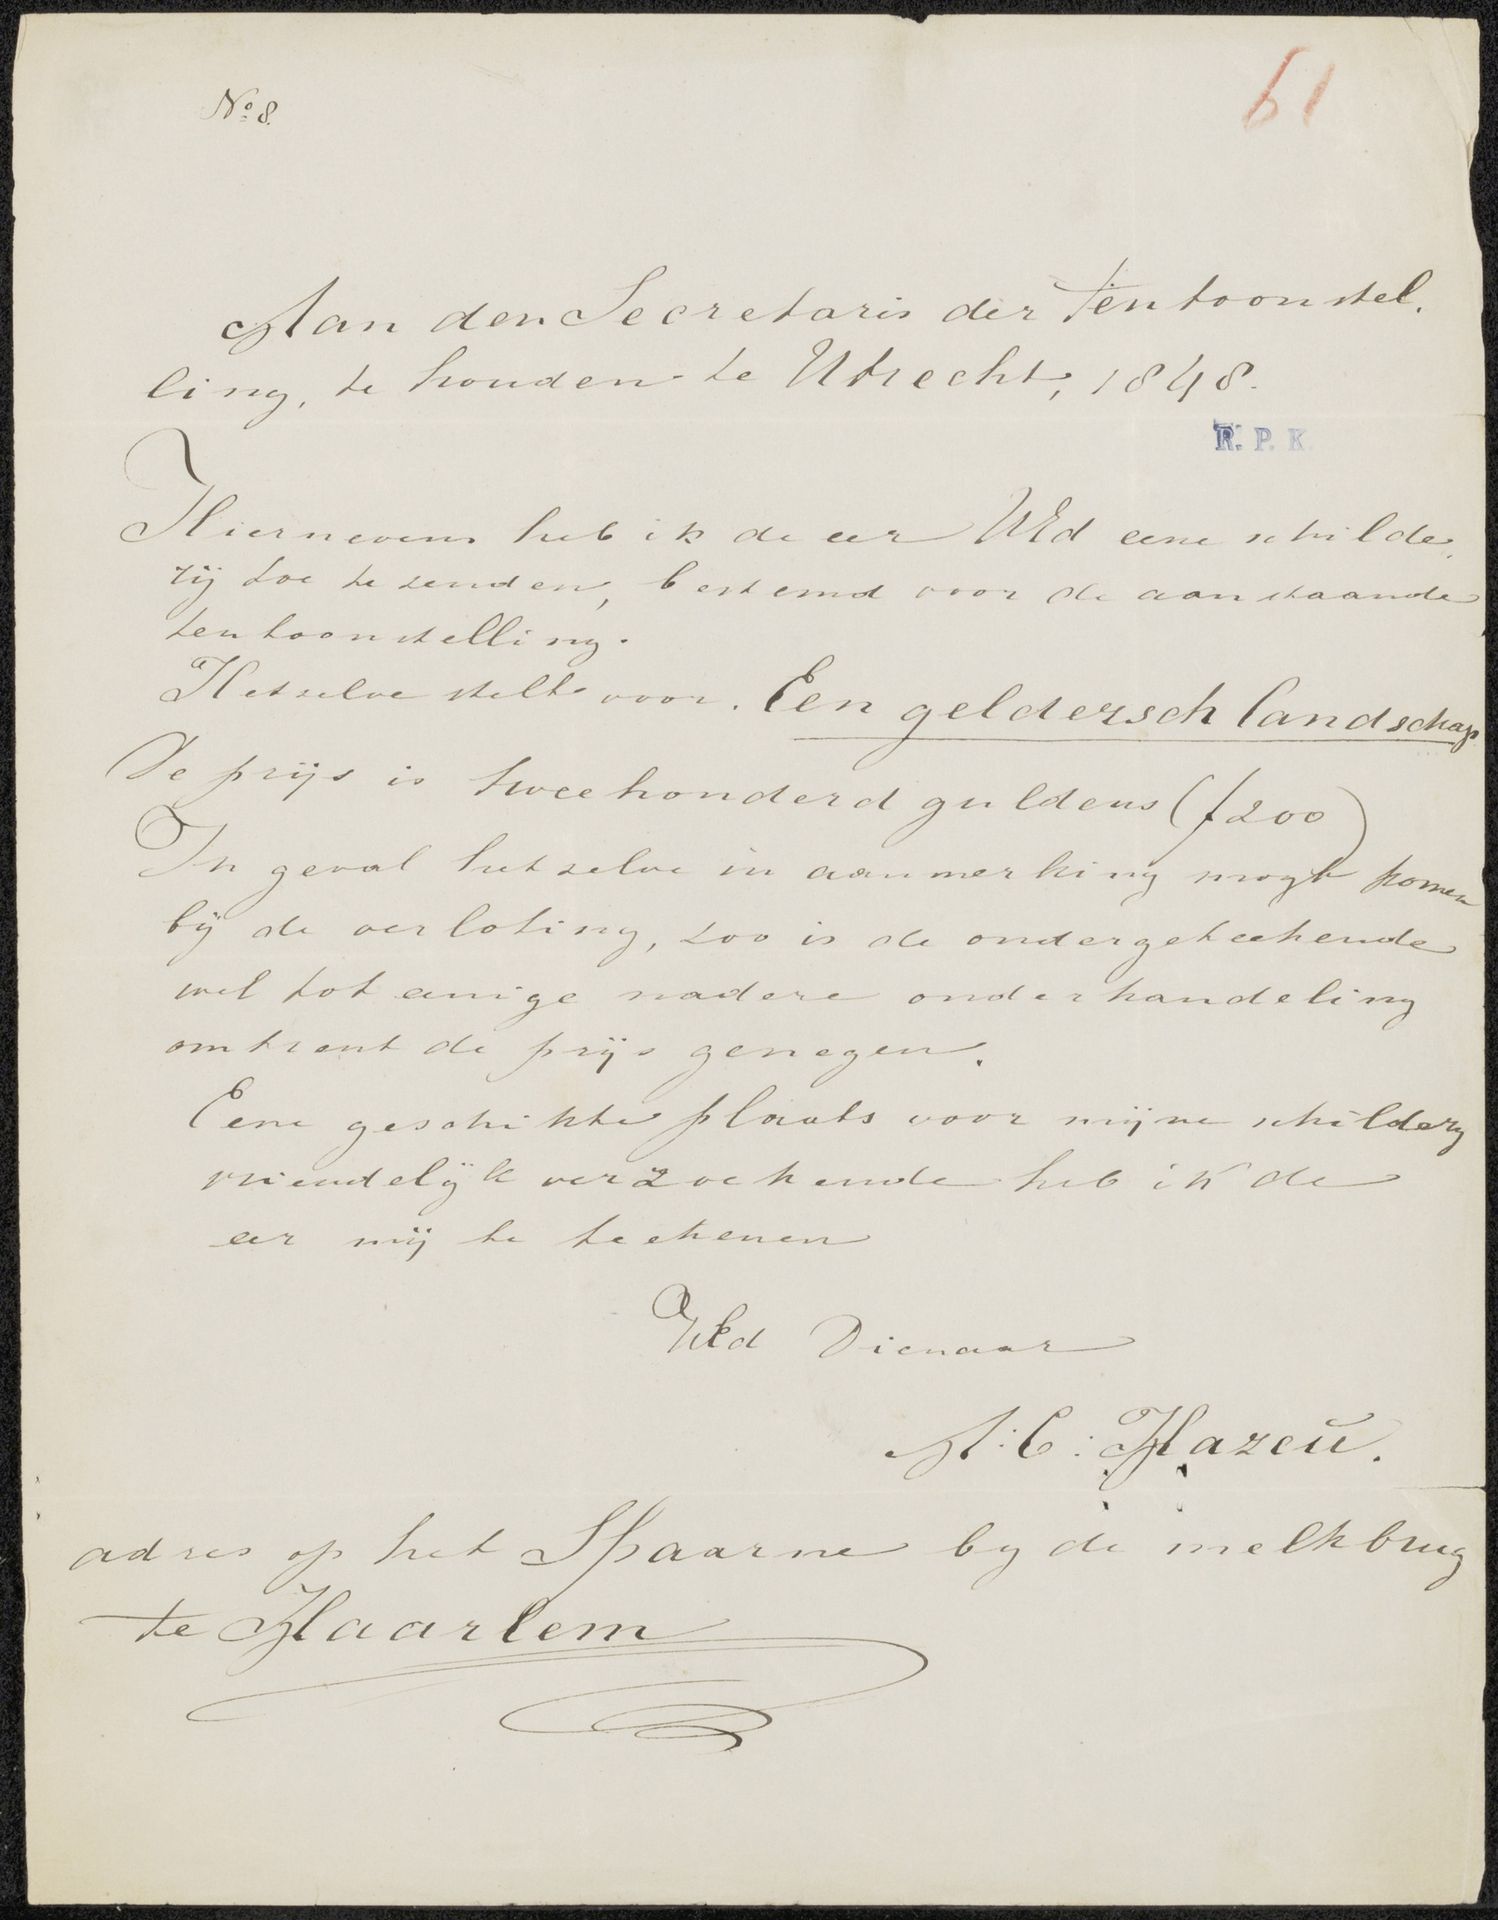 No. 8.
61
Aan den Secretaris der Tentoonstel.
ling, te houden te Utrecht, 1848.
R. P. K.
Hiernevens heb ik de eer UEd eene schilde,
rij toe te zenden, bestemd voor de aanstaande
tentoonstelling.
Hetzelve stelt voor. Een geldersch landschap
De prijs is tweehonderd guldens (ƒ200)
In geval hetzelve in aanmerking mogt komen
bij de verloting, zoo is de ondergeteekende
wel tot eenige nadere onderhandeling
omtrent de prijs genegen.
Eene geschikte plaats voor mijne schildery
vriendelijk verzoekende heb ik de
eer mij te teekenen
UEd Dienaar
A: C: Hazeu.
adres op het Spaarne by de melkbrug
te Haarlem